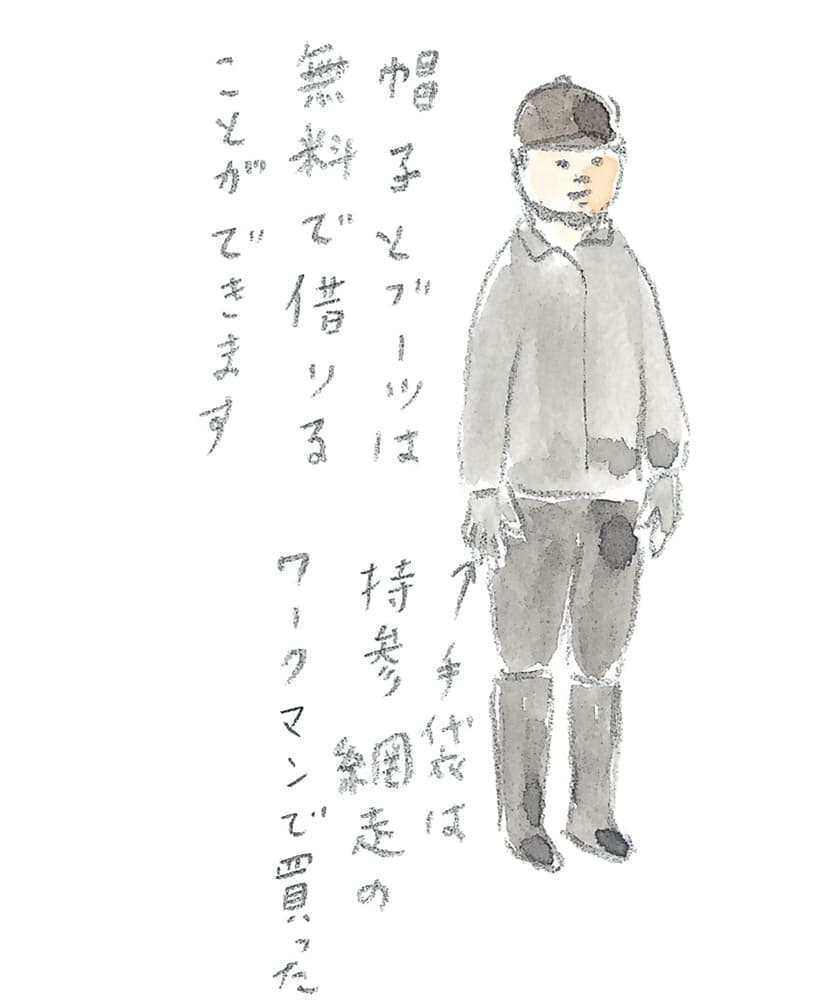 帽子とブーツは
無料で借りる
ことができます
手袋は
持参 網走の
ワークマンで買った